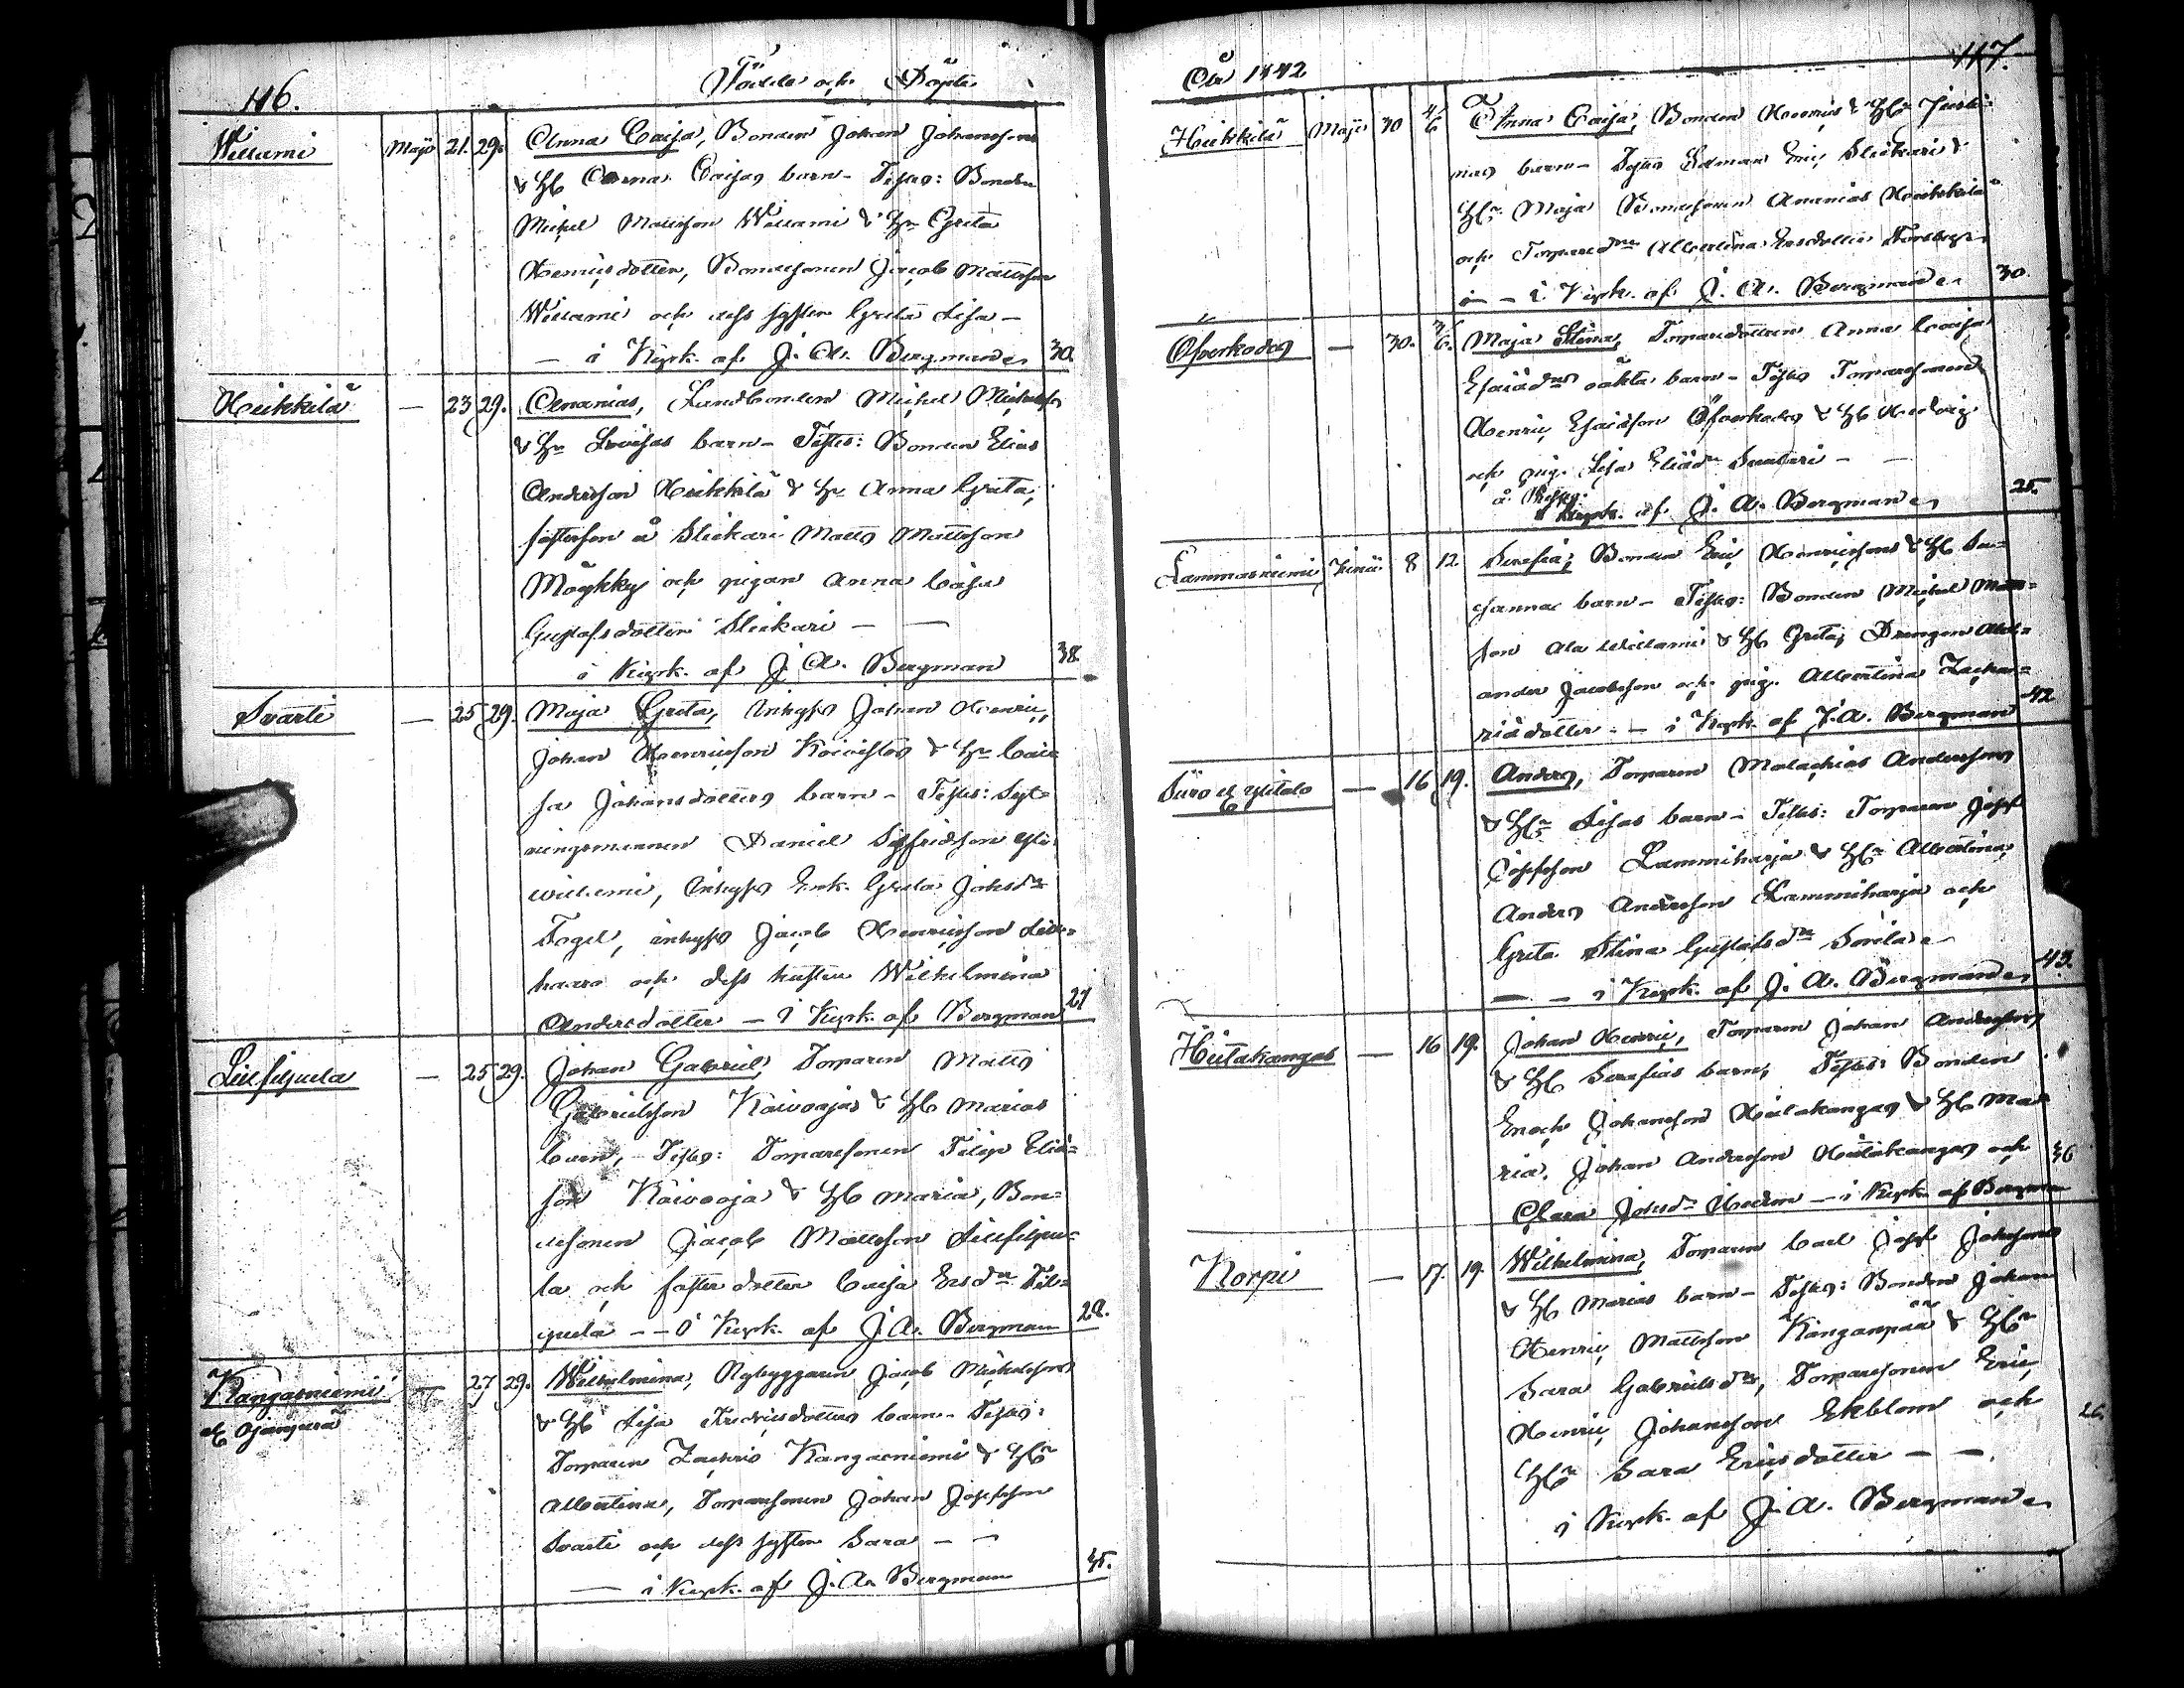 116.
Födde och Döpte
Willami Maji 21. 29. Anna Caisa, Bonden Johan Johanssons
& H. Anna Caisas barn – Testes: Bonden
Michel Mattsson Willami & H. Greta
Henricsdotter, Bondesonen Jacob Mattsson
Willami och dess syster Greta Lisa –
– i Kyrk. af J. A. Bergman 30.
Heikkilä — 23 29. Ananias, Landbonden Michel Michelss.
& H. Lovisas barn – Testes: Bonden Elias
Andersson Heikkilä & H. Anna Greta,
fosterson å Sliekari Matts Mattsson
Möykky och pigan Anna Cajsa
Gustafsdotter Sliekari –
i Kyrk. af J. A. Bergman 38.
Svarti — 25 29. Maja Greta, Inhyss Johan Henric
Johan Henricsson Koivistos & H. Cai=
sa Johansdotters barn – Testes: Syt=
ningsmannen Daniel Sigfridsson
willami, Inhyss Enk. Greta Johsdr
Fogel, inhyss Jacob Henricsson
haara och dess hustru Wilhelmina
Andersdotter – i Kyrk. af Bergman 27
Lillfiljuela — 25 29. Johan Gabriel, Torparen Matts
Gabrielsson Kaivoojas & H. Marias
barn, – Testes: Torparesonen Filip Eliä=
son Kaivooja & H. Maria, Bon=
desonen Jacob Mattsson Lillfilpu=
la och foster dotter Caisa Ersdr Fil=
puela – – i Kyrk. af J. A. Bergman 28.
Kangasniemi — 27 29. Wilhelmina, Nybyggaren Jacob Michelssons
af Ojanperä
& H. Lisa Fredricsdotters barn – Testes:
Torparen Zachris Kangasniemi & H.
Albertina, Torparesonen Johan Josefsson
Svarti och dess syster Sara – –
– i Kyrk. af J. A. Bergman 35.
År 1842 117.
Heikkilä Maji 30 4/6 Anna Caisa, Bonden Henrics & H. Justi=
nas barn – Testes Eric Sliekari &
H. Maja Bondesonen Ananias Heikkilä
och Torparedr Albertina Ersdotter
– i Kyrk. af J. A. Bergman 30.
Öfverkodas — 30. 6. Maja Stina, Torparedottren Anna Caisa
Esaiädrs oäkta barn – Testes Torparesonen
Henric Esaiäson Öfverkodas & H. Hedvig
och pig. Lisa Eliädr –
Kyrk. af J. A. Bergman 25.
Lammasniemi Junii 8 12. Serafia, Bonden Eric Henricssons & H. Su=
sannas barn – Testes: Bonden Michel Matts=
son Ala Willami & H. Greta, Drengen Alex=
ander Jacobsson och pig. Albertina Zachar=
riädotter – i Kyrk. af J. A. Bergman 42
— 16 19. Anders, Torparen Malachias Anderssons
& H. Lisas barn – Testes: Torparen Josef
Josefsson Lammiharja & H. Albertina,
Anders Andersson Lammiharja och
Greta Stina Gustafsdr
– – i Kyrk. af J. A. Bergman 43.
Hietakangas — 16 19. Johan Henric, Torparen Johan Anderssons
& H. Serafias barn, Testes: Bonden
Enoch Johansson Hietakangas & H. Ma=
ria, Johan Andersson Hietakangas och
Clara Johsdr – i Kyrk. af Bergman 36
Korpi — 17. 19. Wilhelmina, Torparen Carl Josef Johssons
& H. Marias barn – Testes: Bonden Johan
Henric Mattsson Kanganpää & H.
Sara Gabrielsdr, Torparesonen Eric
Henric Johansson Ekblom och
H. Sara Ericsdotter – – 26.
i Kyrk. af J. A. Bergman